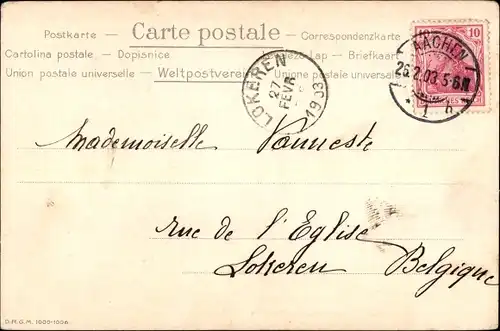 Postkarte - Carte postale - Correspondenzkarte
Cartolina postale - Dopisnice Lap - Briefkaart
Union postale universelle - Weltpostverein Unione postale universale
10
AACHEN
26.2.03.5-6N
* 1 h *
LOKEREN
27
FEVR
1903
Mademoiselle Vanneste
rue de l'Eglise
Lokeren Belgique
D.R.G.M.